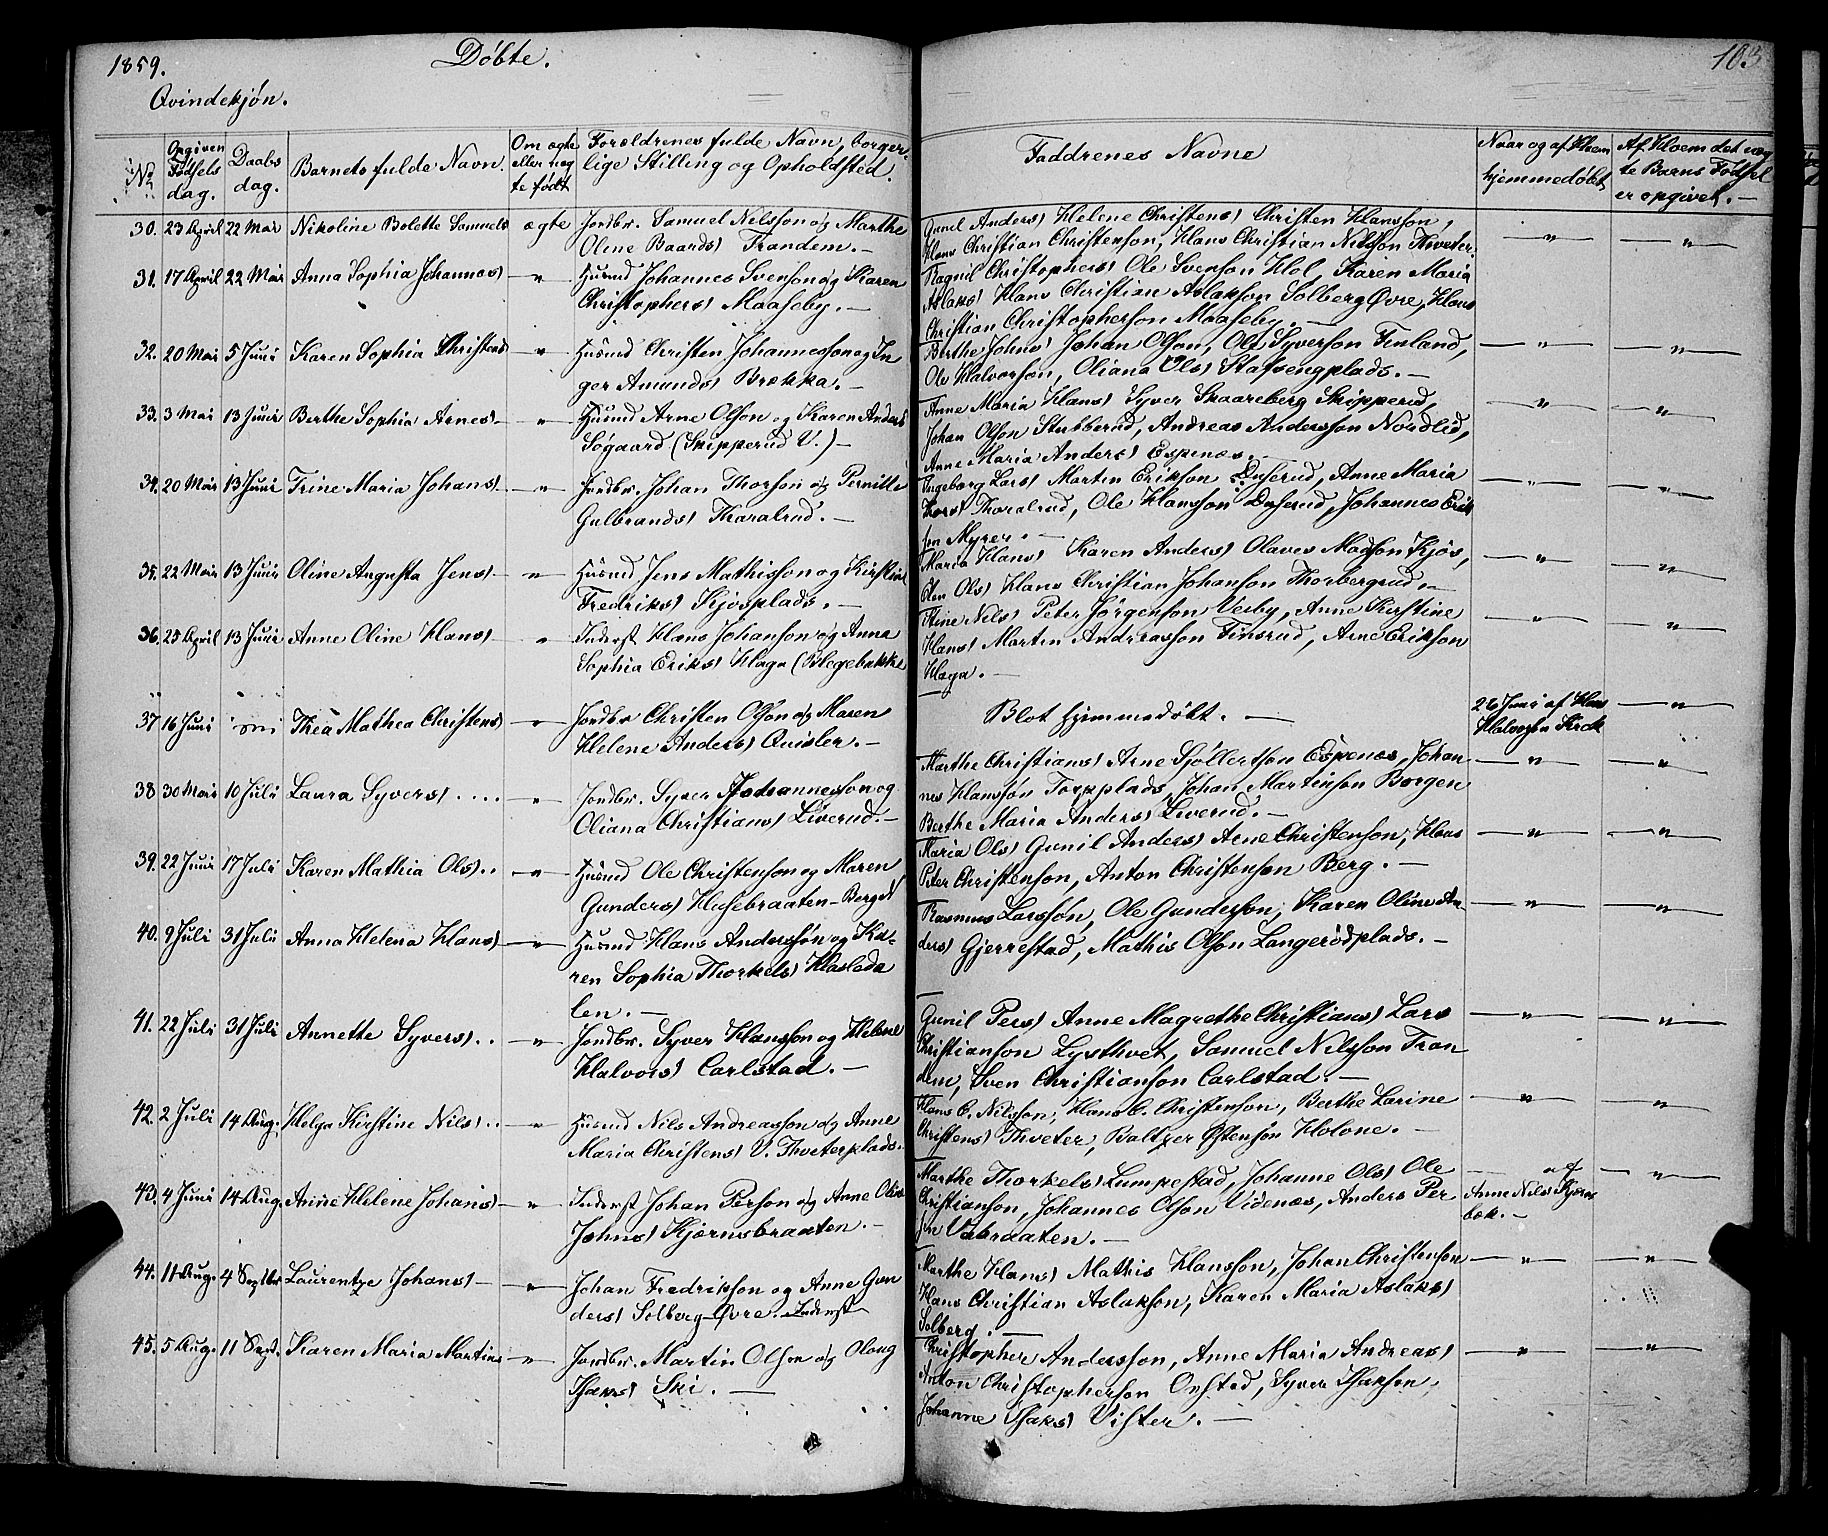 1859.
Döbte.
103
Qvindekjön.
No
Opgiven Födsels dag.
Daabs dag.
Barnets fulde Navn.
Om ægte eller uægte født
Forældrenes fulde Navn, borgerlige Stilling og Opholdsted.
Faddrenes Navne
Naar og af Hvem hjemmedöbt
Af Hvem det uægte Barns Födsel er opgivet. —
30. 23 April 22 Mai Nikoline Bolette Samuels ægte Jordbr. Samuel Nilsson og Marthe
Oline Baards) Trandem. —
Gunel Anders) Helene Christens) Christen Hansson,
Hans Christian Christenson, Hans Christian Nilsson Thveter.
31. 17 April 22 Mai Anna Sophia Johannes) — " — Husmd Johannes Svenson og Karen
Christophers) Maaseby. —
Ragnil Christophers) Ole Svenson Hol, Karen Maria
Aslaks) Hans Christian Aslakson Solberg Övre, Hans
Christian Christopherson Maaseby. —
32. 20 Mai 5 Juni Karen Sophia Christens) — " — Husmd Christen Johannesson og In
ger Amunds) Brekka. —
Berthe Johns) Johan Olson, Ole Syverson Finland,
Ole Halvorson, Oliana Ols) Stafsengplads. —
33. 3 Mai 13 Juni Berthe Sophia Arnes) — " — Husmd Arne Olson og Karen Anders
Sögaard (Skipperud V.) —
Anne Maria Hans) Syver Skaareberg Skipperud,
Johan Olson Stubberud, Andreas Andersson Nordlid,
Anne Maria Anders) Espenæs. —
34. 20 Mai 13 Juni Trine Maria Johans) — " — Jordbr. Johan Thorson og Pernille
Gulbrands) Tharalrud. —
Ingeborg Lars) Martin Erikson Duserud, Anne Maria
Lars) Thoralrud, Ole Hansson Duserud, Johannes Erik
son Myrer. —
35. 22 Mai 13 Juni Oline Augusta Jens) — " — Husmd Jens Mathisson og Kirstine
Fredriks) Kjösplads. —
Maria Hans) Karen Anders) Olaves Madson Kjös,
Elen Ols) Hans Christian Johanson Thorbergrud. —
36. 25 April 13 Juni Anne Oline Hans) — " — Inderst Hans Johanson og Anna
Sophia Eriks) Haga (Blegebakke
Stine Nils) Peter Jörgenson Vesby, Anne Kirstine
Hans) Martin Andreasson Finsrud, Arne Erikson
Haga. —
37 16 Juni Thea Mathea Christens) — " — Jordbr Christen Olson og Maren
Helene Anders) Quisler. —
Blot hjemmedöbt. —
26 Juni af Hans
Halvorsen Kirck
38 30 Mai 10 Juli Laura Syvers) .... — " — Jordbr. Syver Johannesson og
Oliana Christians) Liverud. —
Marthe Christians) Arne Sjöllertson Espenæs, Johan
nes Hansson Torpplads, Johan Martinson Borgen
Berthe Maria Anders) Liverud. —
39. 22 Juni 17 Juli Karen Mathia Ols).. — " — Husmd Ole Christenson og Maren
Gunders) Husebraaten-Berget
Maria Ols) Gunil Anders) Arne Christenson, Hans
Peter Christenson, Anton Christenson Berg. —
40. 9 Juli 31 Juli Anna Helena Hans) — " — Husmd Hans Andersson og Ka-
ren Sophia Thorkels) Haslada
len. —
Rasmus Larsson, Ole Gunderson, Karen Oline An
ders) Gjerrestad, Mathis Olson Langerödplads. —
41. 22 Juli 31 Juli Annette Syvers).. — " — Jordbr. Syver Hansson og Helene
Halvors) Carlstad. —
Gunil Pers) Anne Magrethe Christians) Lars
Christianson Lysthvet, Samuel Nilsson Tran
dem, Sven Christianson Carlstad. —
42. 2 Juli 14 Aug. Helga Kirstine Nils).. — " — Husmd Nils Andreasson og Anne
Maria Christens) V. Thveterplads.
Hans C. Nilsson, Hans C. Christenson, Berthe Larine
Christens) Thveter, Baltzer Östenson Holone. —
43. 4 Juni 14 Aug. Anne Helene Johans) — " — Inderst Johan Person og Anne Olia
Johns) Kjærnsbraaten. —
Marthe Thorkels) Lumpestad, Johanne Ols) Ole
Christianson, Johannes Olson Videnæs, Anders Per
son Vabraaten. —
af
Anne Nils) Kjærns
bæk. —
44. 11 Aug. 4 Septbr Laurentze Johans) — " — Johan Fredrikson og Anne Gun
ders) Solberg Övre. Inderst
Marthe Hans) Mathis Hansson, Johan Christenson
Hans Christian Aslakson, Karen Maria Aslaks)
Solberg. —
45. 5 Aug. 11 Sept. Karen Maria Martins — " — Jordbr. Martin Olson og Olaug
Isaks) Ski. —
Christopher Andersson, Anne Maria Andreas)
Anton Christopherson Onstad, Syver Isakson,
Johanne Isaks) Vister. —